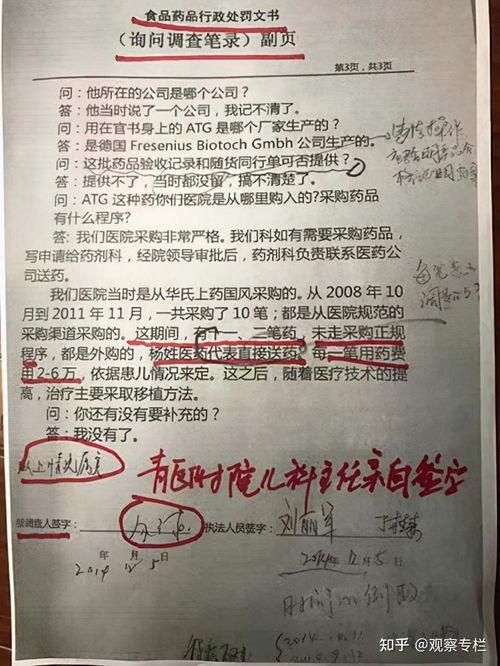 食品药品行政处罚文书
（询问调查笔录）副页
第3页，共3页
问：他所在的公司是哪个公司？
答：他当时说了一个公司，我记不清了。
问：用在官书身上的 ATG 是哪个厂家生产的？
答：是德国 Fresenius Biotoch Gmbh 公司生产的。
问：这批药品验收记录和随货同行单可否提供？
答：提供不了，当时都没留，搞不清楚了。
问：ATG 这种药你们医院是从哪里购入的?采购药品
有什么程序？
答：我们医院采购非常严格。我们科如有需要采购药品，
写申请给药剂科，经院领导审批后，药剂科负责联系医药公
司送药。
我们医院当时是从华氏上药国风采购的。从 2008 年 10
月到 2011 年 11 月，一共采购了 10 笔；都是从医院规范的
采购渠道采购的。这期间，有一、二笔药，未走采购正规
程序，都是外购的，杨姓医药代表直接送药。每一笔用药费
用 2-6 万，依据患儿情况来定。这之后，随着医疗技术的提
高，治疗主要采取移植方法。
问：你还有没有要补充的？
答：我没有了。
以上情况属实
青医附院儿科主任亲自签字
被调查人签字： 执法人员签字： 刘丽军
年 月 日
2014 12 5
2014年12月5日
知乎 @观察专栏